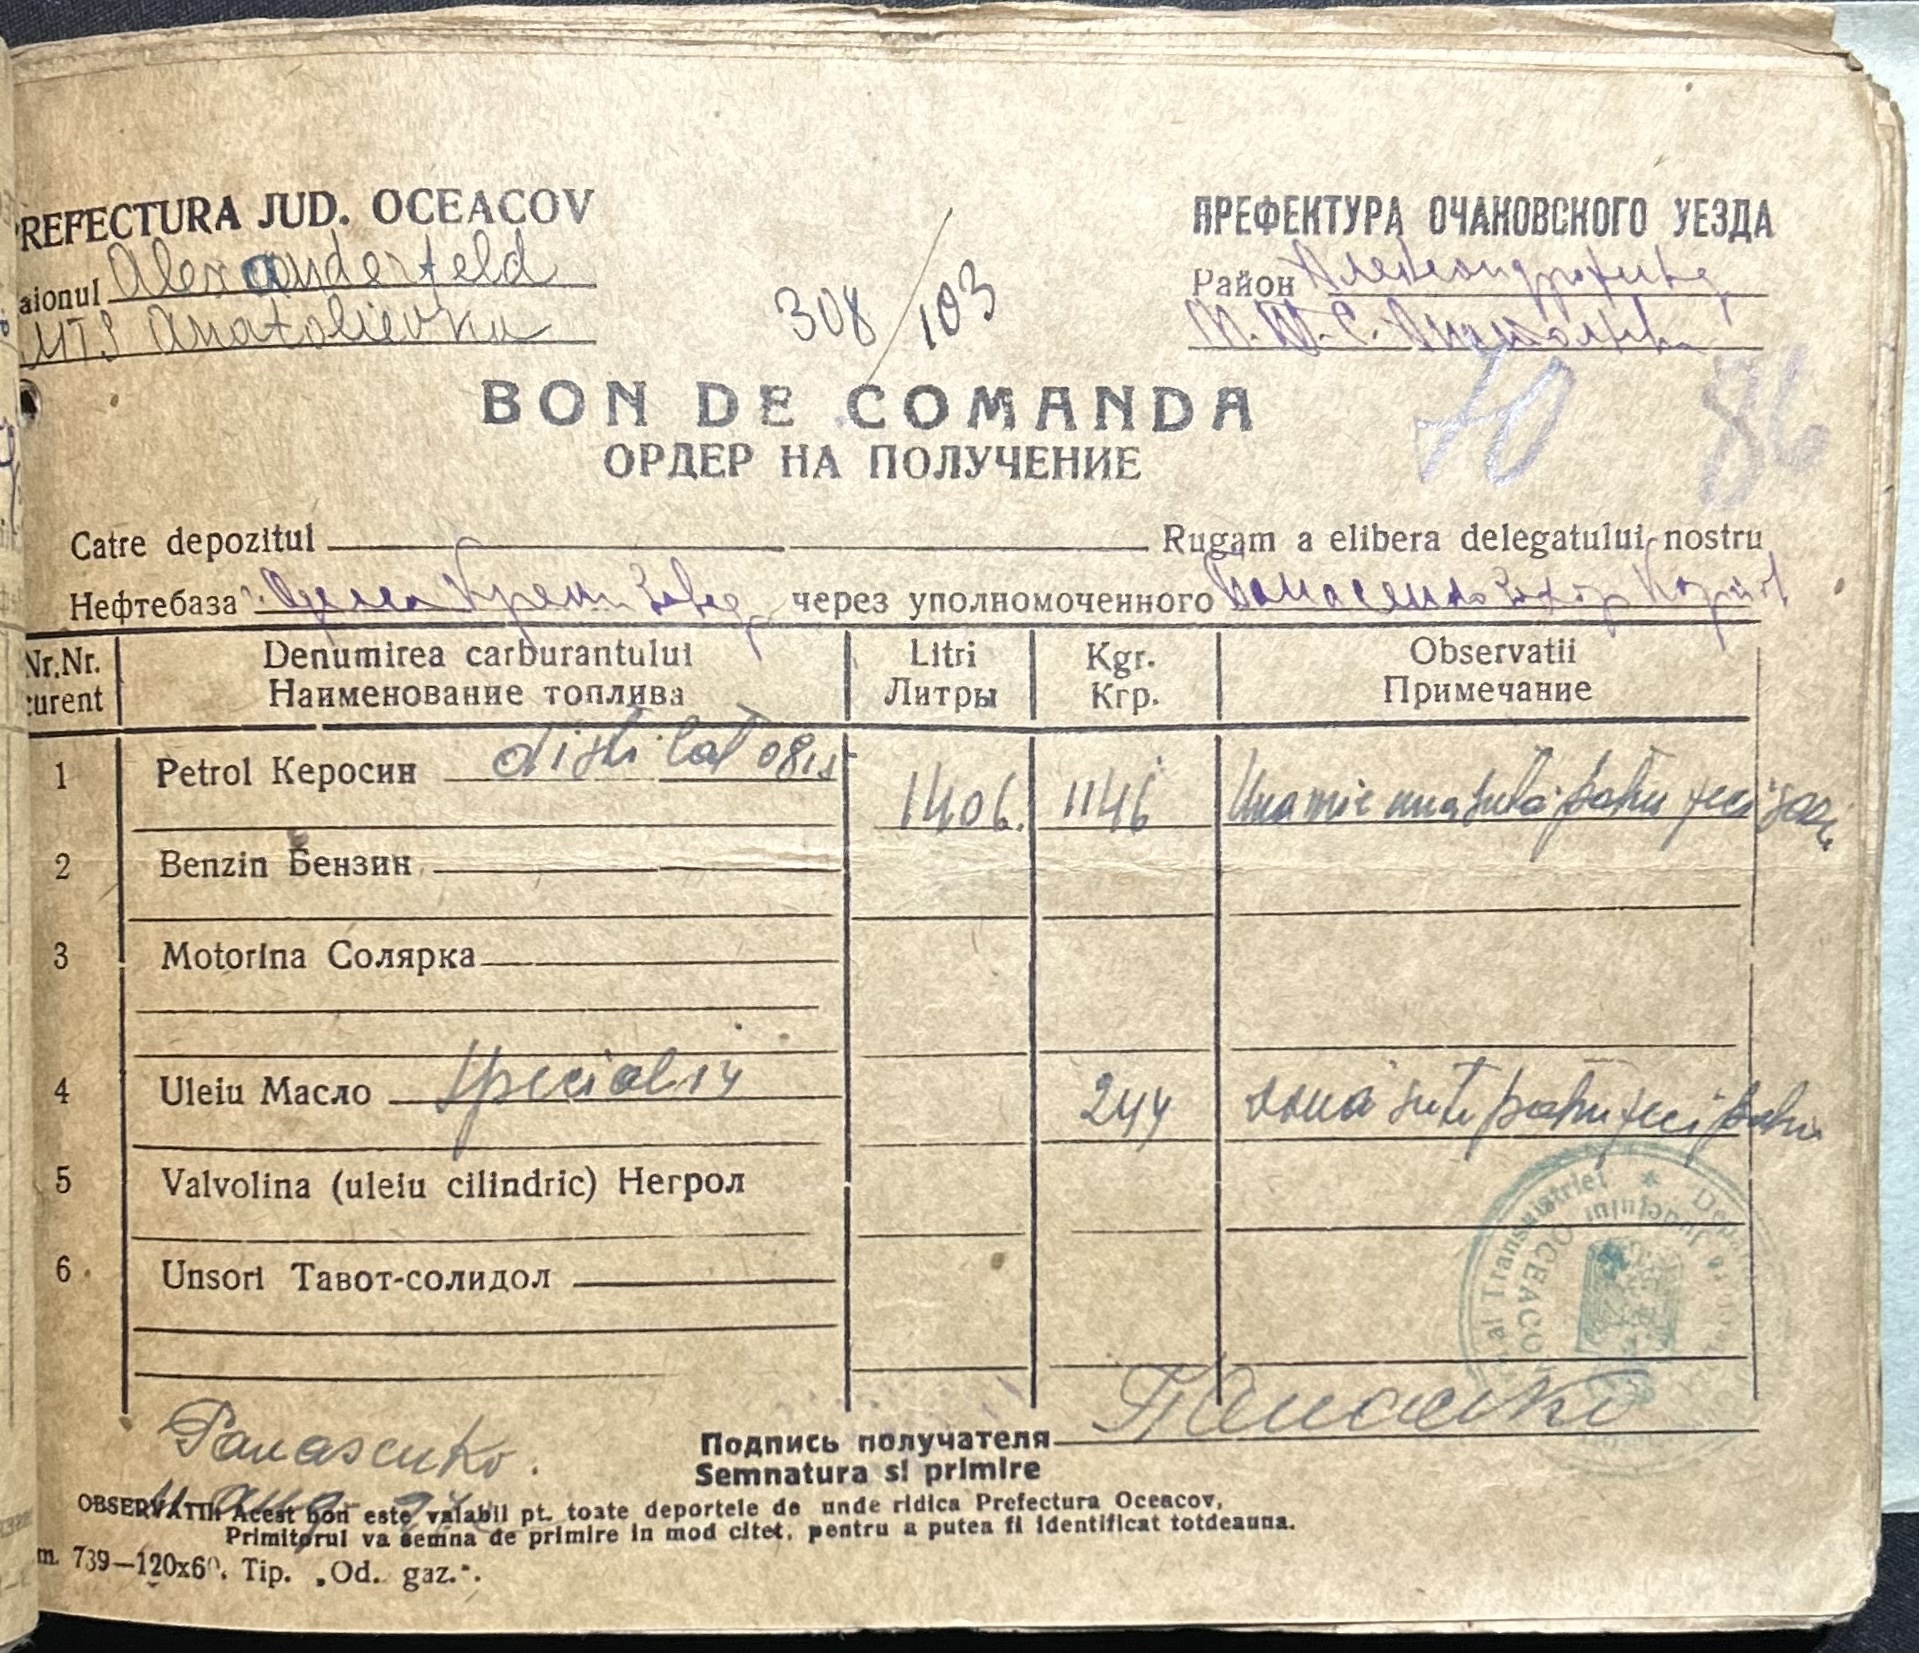 PREFECTURA JUD. OCEACOV
aionul Alexanderfeld
MTS Anatolievka
308/103
ПРЕФЕКТУРА ОЧАКОВСКОГО УЕЗДА
Район
М.Т.С.
10 86
BON DE COMANDA
ОРДЕР НА ПОЛУЧЕНИЕ
Catre depozitul Rugam a elibera delegatului nostru
Нефтебаза г. Одесса через уполномоченного
Nr.Nr. Denumirea carburantului Litri Kgr. Observatii
curent Наименование топлива Литры Кгр. Примечание
1 Petrol Керосин distilat 0815 1406. 1146 Una mie una sută patru zeci șase
2 Benzin Бензин
3 Motorina Солярка
4 Uleiu Масло special 14 244 două sute patru zeci patru
5 Valvolina (uleiu cilindric) Негрол
6 Unsori Тавот-солидол
al Transnistriei
Județului
OCEACOV
Panasenko.
Подпись получателя Панасенко
Semnatura si primire
OBSERVATII: Acest bon este valabil pt. toate deportele de unde ridica Prefectura Oceacov,
Primitorul va semna de primire in mod citet, pentru a putea fi identificat totdeauna.
m. 739—120x60. Tip. „Od. gaz.".